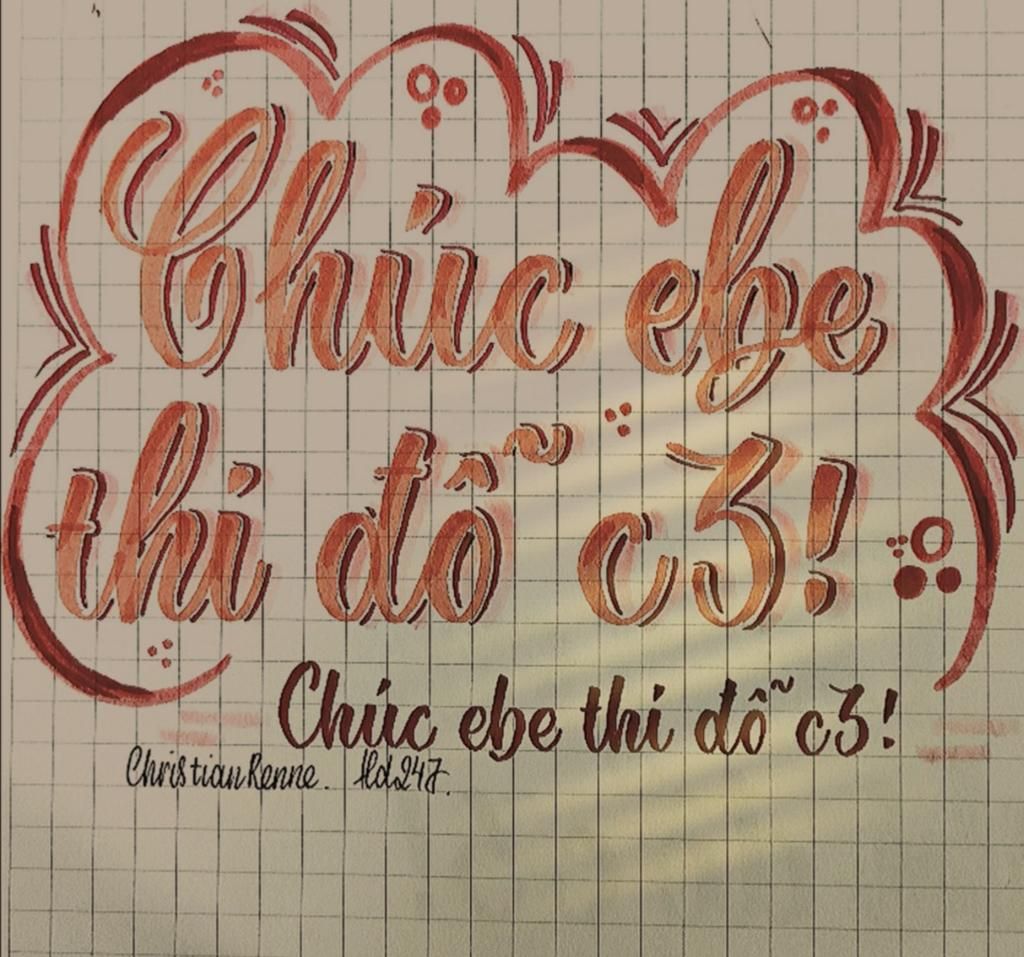 Chúc ebe
thi đỗ c3!
Chúc ebe thi đỗ c3!
Christian Renne. Hd247.